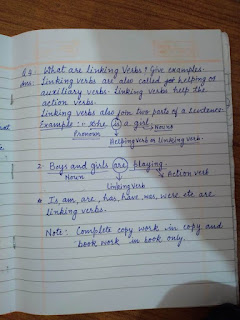 Q.3. What are Linking Verbs? Give examples.
Ans: Linking verbs are also called helping or
auxiliary verbs. Linking verbs help the
action verbs.
Linking verbs also join two parts of a sentence.
Example:- She is a girl.
Pronoun Noun
Helping verb or Linking verb.
2. Boys and girls are playing.
Noun Action verb
Linking verb
Is am, are, has, have, was, were etc are
linking verbs.
Note: Complete copy work in copy and
book work in book only.